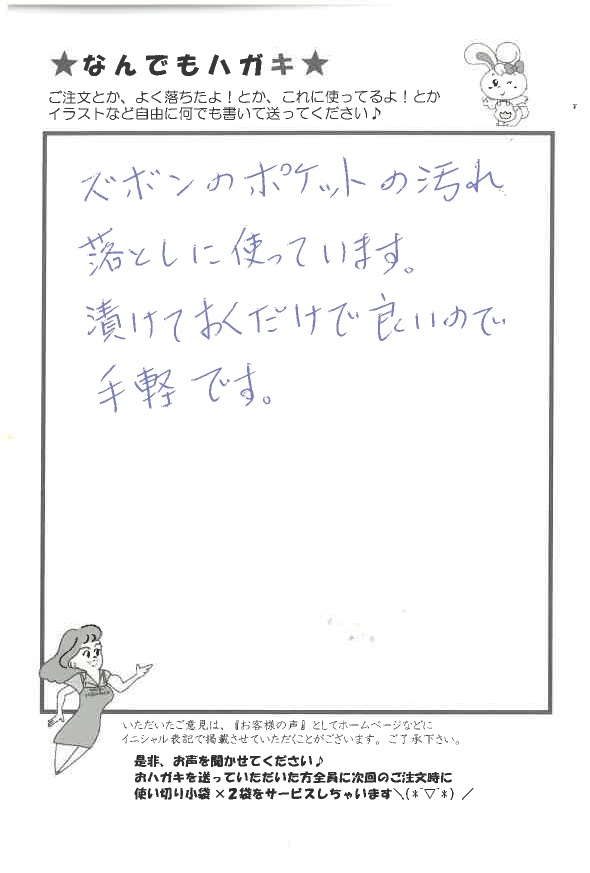 ★なんでもハガキ★
ご注文とか、よく落ちたよ！とか、これに使ってるよ！とか
イラストなど自由に何でも書いて送ってください♪
ズボンのポケットの汚れ
落としに使っています。
漬けておくだけで良いので
手軽です。
いただいたご意見は、『お客様の声』としてホームページなどに
イニシャル表記で掲載させていただくことがございます。ご了承下さい。
是非、お声を聞かせてください♪
おハガキを送っていただいた方全員に次回のご注文時に
使い切り小袋×２袋をサービスしちゃいます＼(*¯▽¯*)／